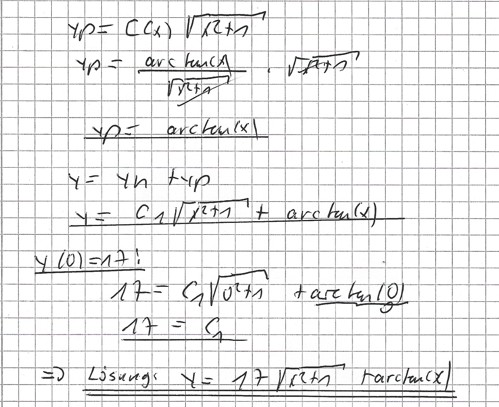 yp = C(x) √(x²+1)
yp = arctan(x) / √(x²+1) · √(x²+1)
yp = arctan(x)
y = yh + yp
y = C1 √(x²+1) + arctan(x)
y(0)=17:
17 = C1 √(0²+1) + arctan(0)
0
17 = C1
=> Lösung: y = 17 √(x²+1) + arctan(x)